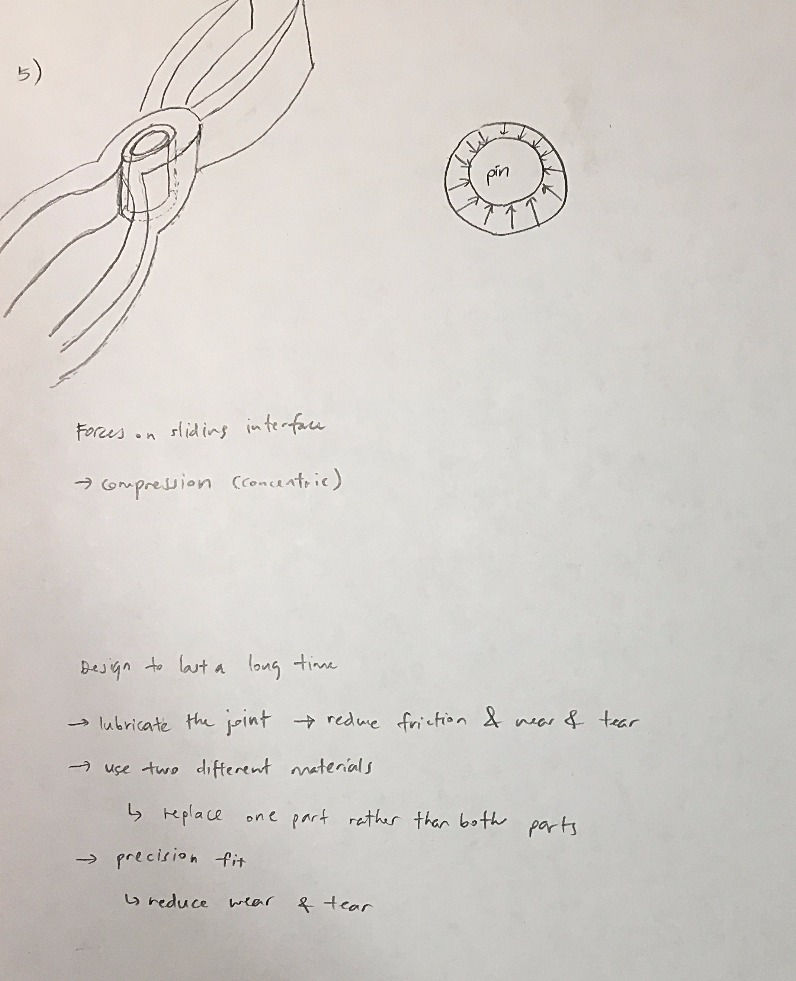 5)
pin
Forces on sliding interface
→ compression (concentric)
Design to last a long time
→ lubricate the joint → reduce friction & wear & tear
→ use two different materials
↳ replace one part rather than both parts
→ precision fit
↳ reduce wear & tear